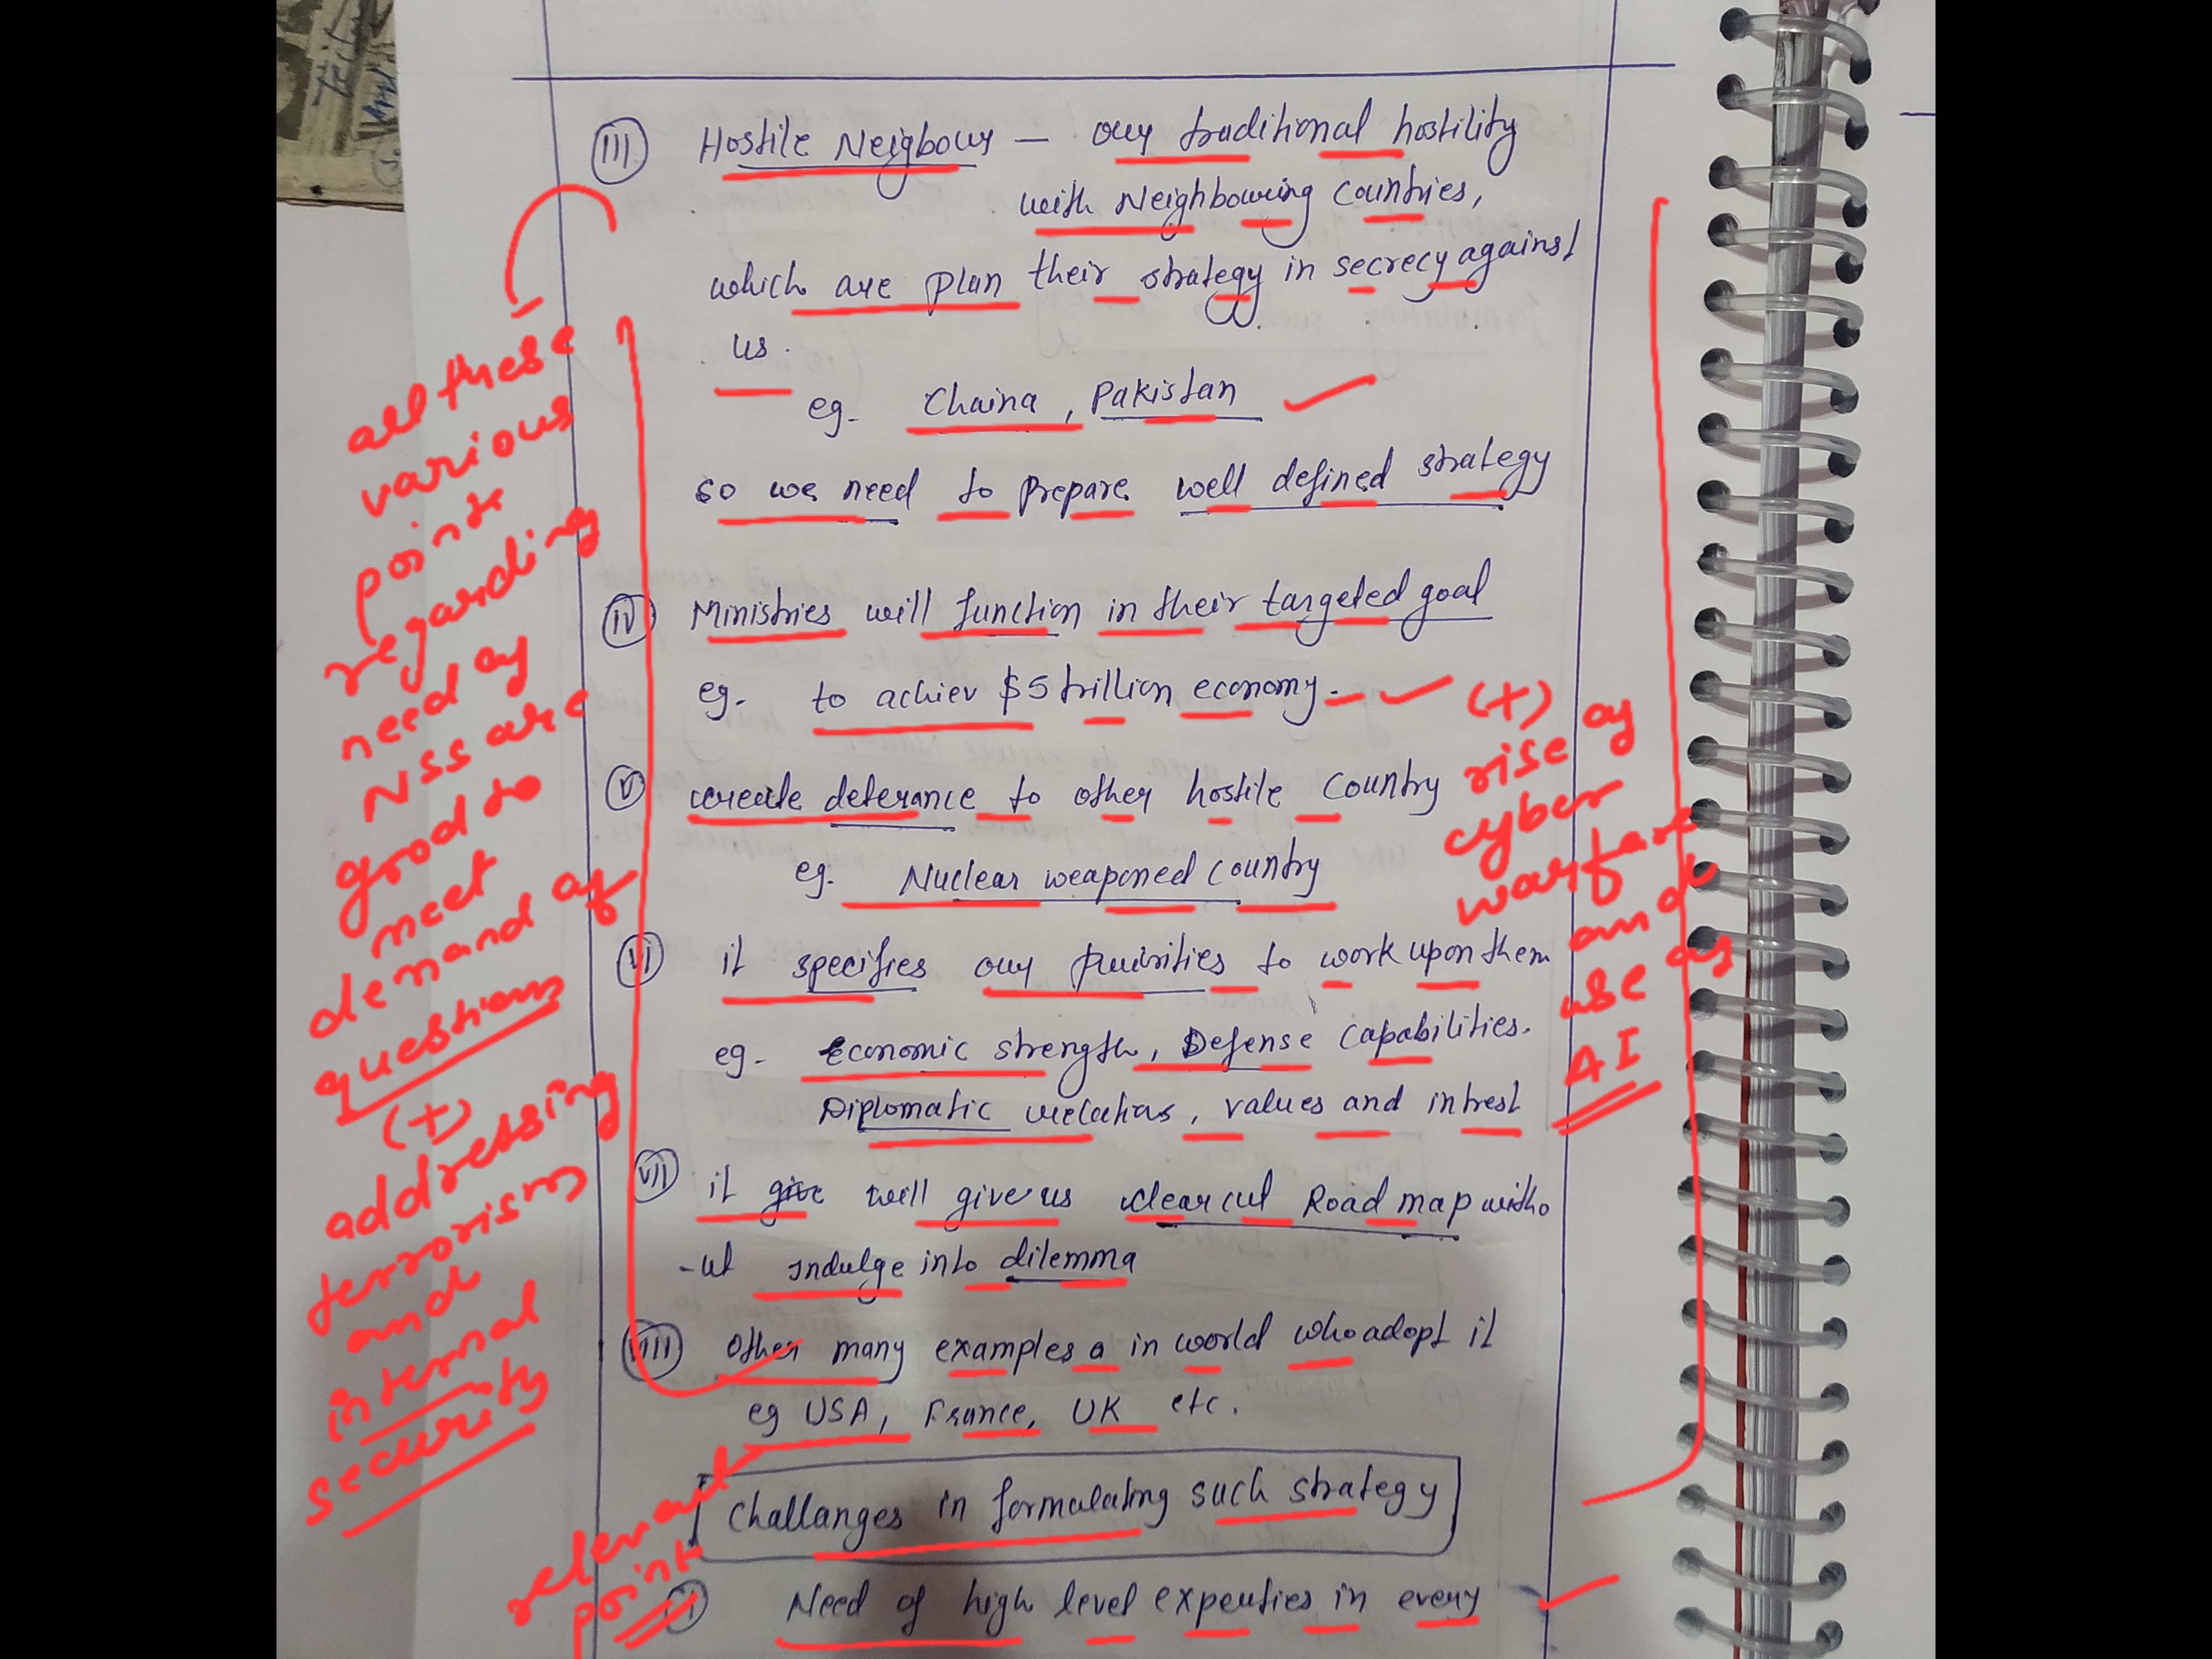 (III) Hostile Neigbour – our traditional hostility
with Neighbouring countries,
which are plan their strategy in secrecy against
us.
eg- Chaina, Pakistan
so we need to prepare well defined strategy
(IV) Ministries will function in their targeted goal
eg- to achiev $5 trillion economy-
(V) create deterance to other hostile country
eg- Nuclear weaponed country
(VI) it specifies our priorities to work upon them
eg- Economic strength, Defense capabilities.
Diplomatic relations, values and intrest
(VII) it give will give us clear cut Road map witho
-ut indulge into dilemma
(VIII) other many examples a in world who adopt it
eg USA, France, UK etc.
Challanges in formulating such strategy
(i) Need of high level experties in every
all these
various
points
regarding
need of
NSS are
good to
meet
demand of
question
(+)
addressing
terrorism
and
internal
security
relevant
point
(+)
rise of
cyber
warfare
and
use of
AI